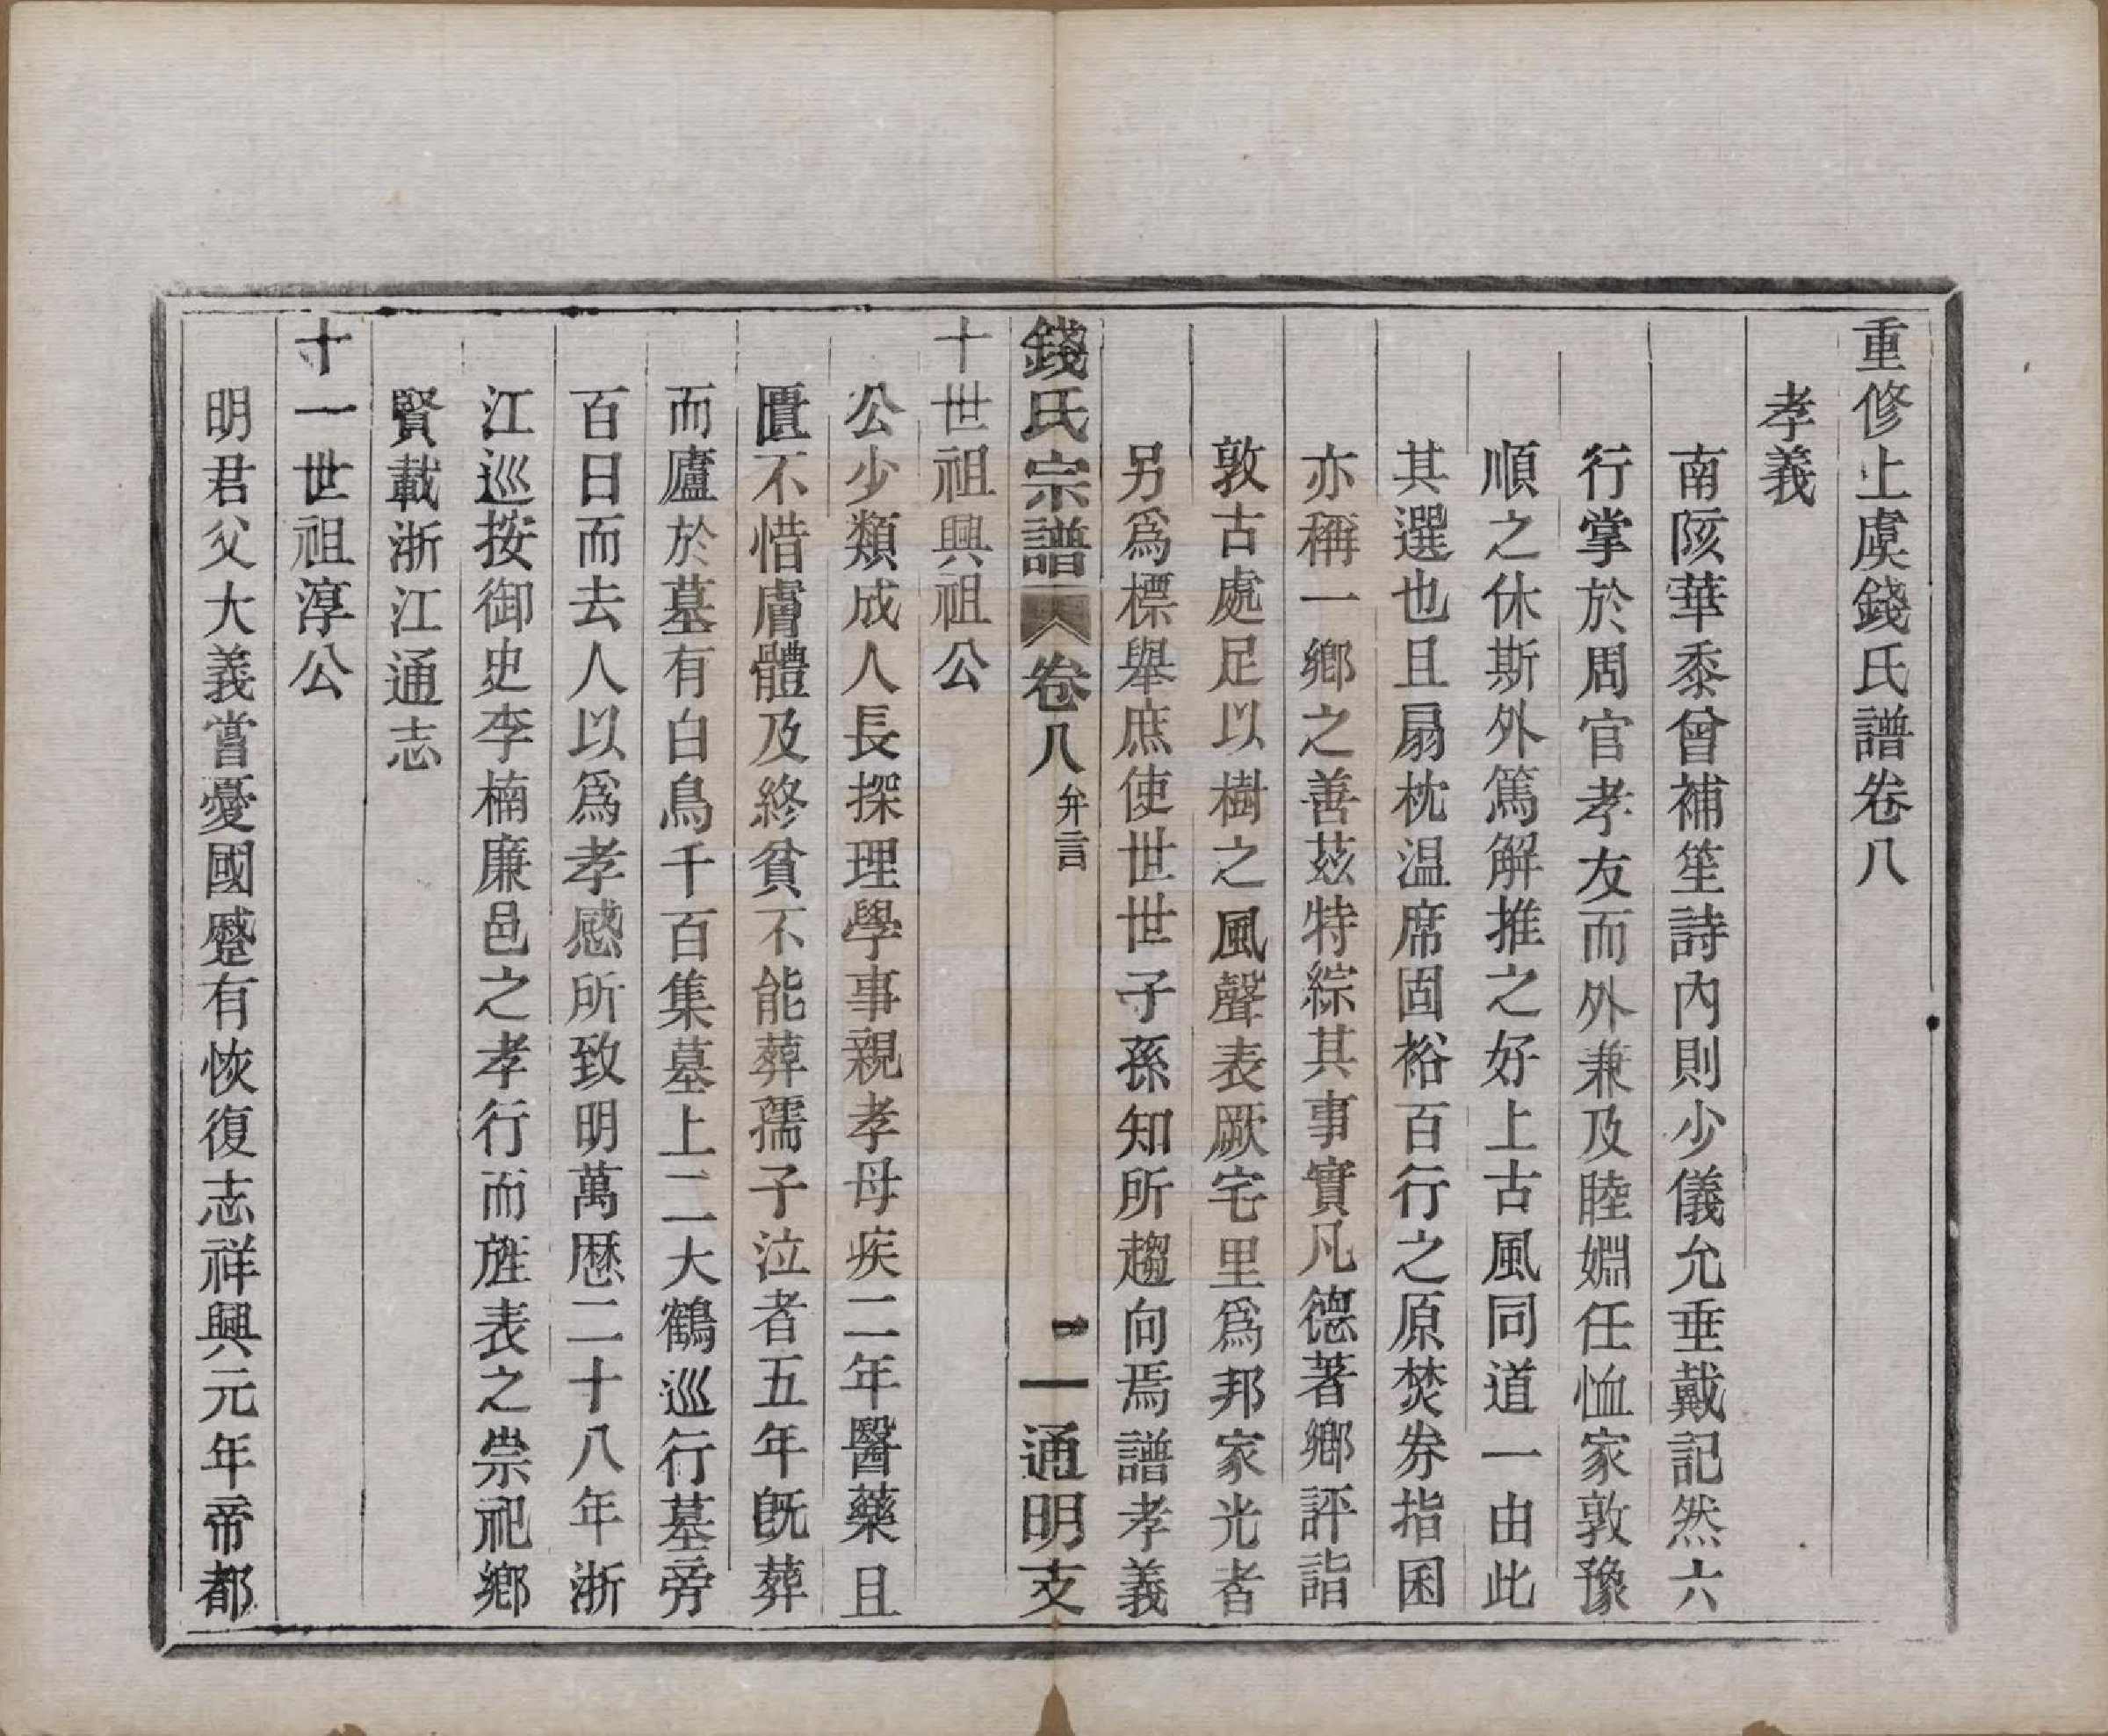 重修上虞錢氏譜卷八
孝義
南陔華黍曾補笙詩內則少儀允垂戴記然六
行掌於周官孝友而外兼及睦婣任恤家敦豫
順之休斯外篤解推之好上古風同道一由此
其選也且扇枕温席固裕百行之原焚券指囷
亦稱一鄉之善茲特綜其事實凡德著鄉評詣
敦古處足以樹之風聲表厥宅里爲邦家光者
另爲標舉庶使世世子孫知所趨向焉譜孝義
錢氏宗譜 卷八 弁言 一 通明支
十世祖興祖公
公少類成人長探理學事親孝母疾二年醫藥且
匱不惜膚體及終貧不能葬孺子泣者五年旣葬
而廬於墓有白鳥千百集墓上二大鶴巡行墓旁
百日而去人以爲孝感所致明萬歷二十八年浙
江巡按御史李楠廉邑之孝行而旌表之祟祀鄉
賢載浙江通志
十一世祖淳公
明君父大義嘗憂國蹙有恢復志祥興元年帝都